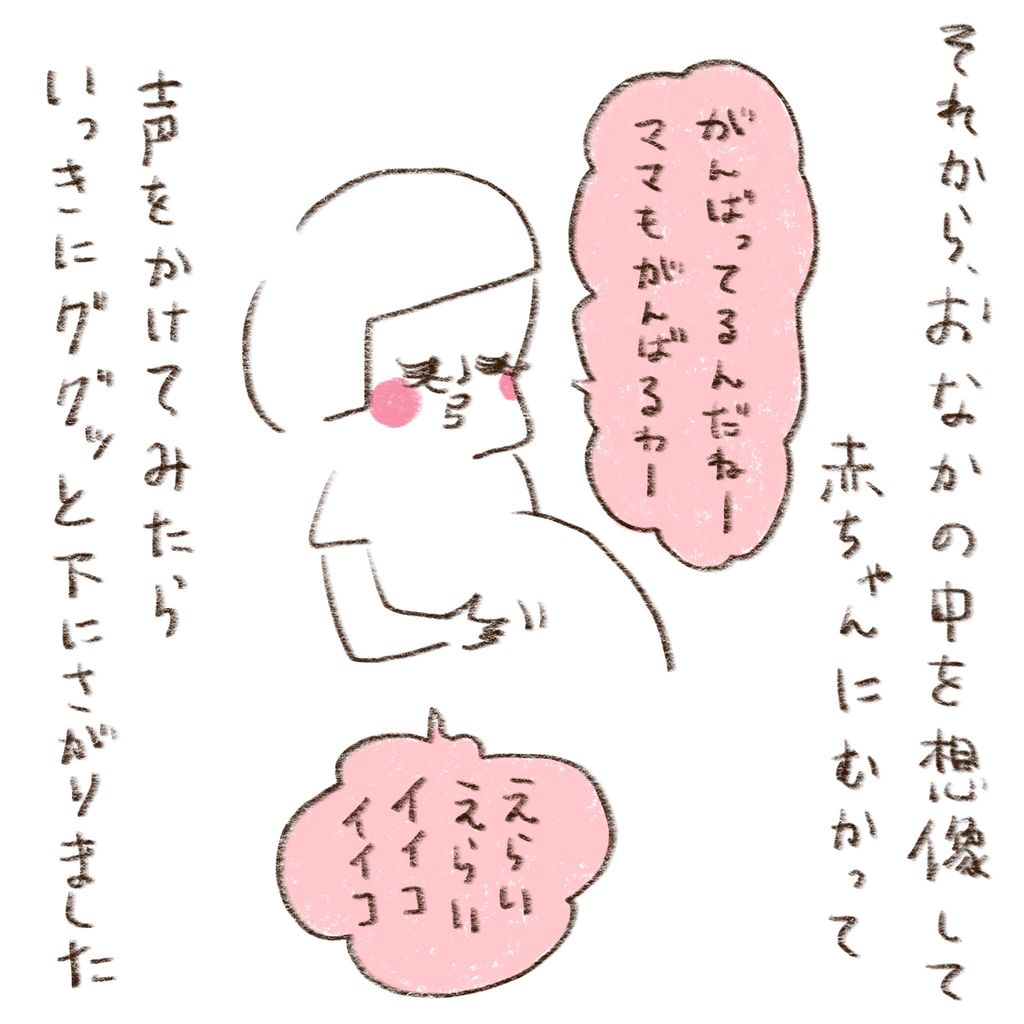 それから、おなかの中を想像して
赤ちゃんにむかって
がんばってるんだねー
ママもがんばるカー
えらい
えらい
イイコ
イイコ
声をかけてみたら
いっきにググッと下にさがりました